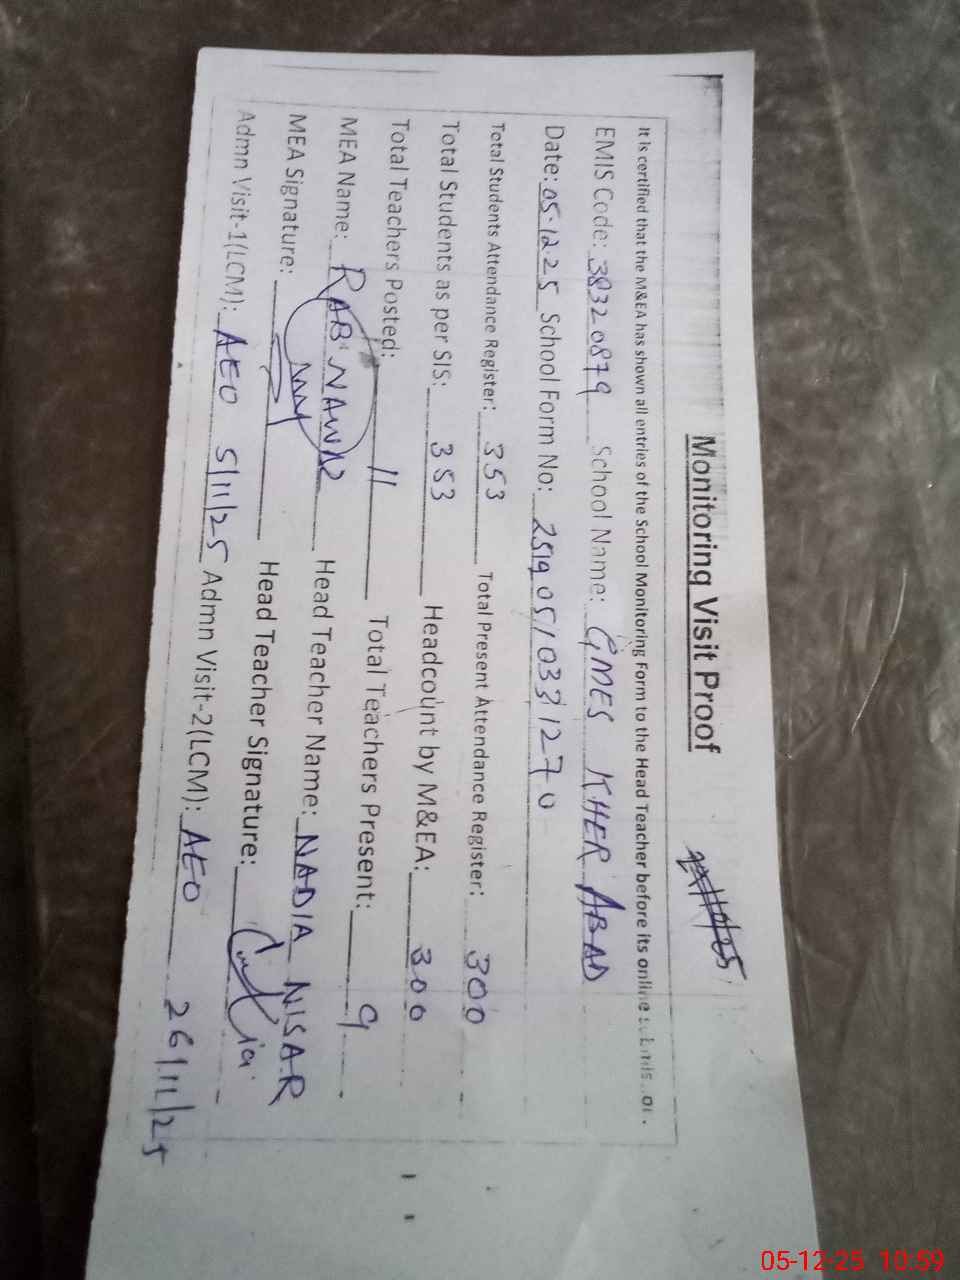 Monitoring Visit Proof
It is certified that the M&EA has shown all entries of the School Monitoring Form to the Head Teacher before its online
EMIS Code: 38320879 School Name: GMES KHER ABAD
Date: 05.12.25 School Form No: 25190510331270
Total Students Attendance Register: 353 Total Present Attendance Register: 300
Total Students as per SIS: 353 Headcount by M&EA: 300
Total Teachers Posted: 11 Total Teachers Present: 9
MEA Name: RAB NAWAZ Head Teacher Name: NADIA NISAR
MEA Signature: Head Teacher Signature:
Admn Visit-1(LCM): AEO 5/11/25 Admn Visit-2(LCM): AEO 26/11/25
05-12-25 10:59